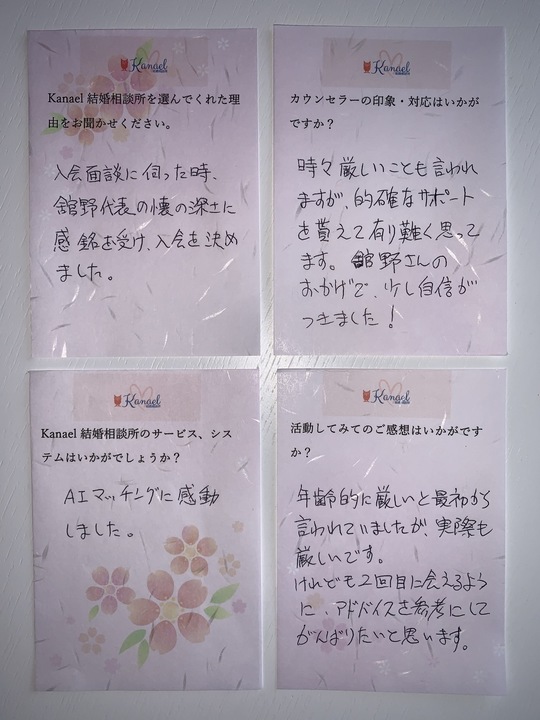 Kanael
Kanael 結婚相談所を選んでくれた理
由をお聞かせください。
入会面談に伺った時、
舘野代表の懐の深さに
感銘を受け、入会を決め
ました。
Kanael
カウンセラーの印象・対応はいかが
ですか？
時々厳しいことも言われ
ますが、的確なサポート
を貰えて有り難く思って
ます。舘野さんの
おかげで、少し自信が
つきました！
Kanael
Kanael 結婚相談所のサービス、シス
テムはいかがでしょうか？
AIマッチングに感動
しました。
Kanael
活動してみてのご感想はいかがです
か？
年齢的に厳しいと最初から
言われていましたが、実際も
厳しいです。
けれども2回目に会えるよう
に、アドバイスを参考にして
がんばりたいと思います。